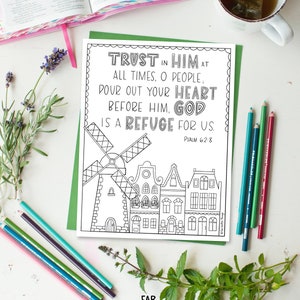 TRUST IN HIM AT
ALL TIMES, O PEOPLE,
POUR OUT YOUR HEART
BEFORE HIM, GOD
IS A REFUGE FOR US.
PSALM 62:8
FAR